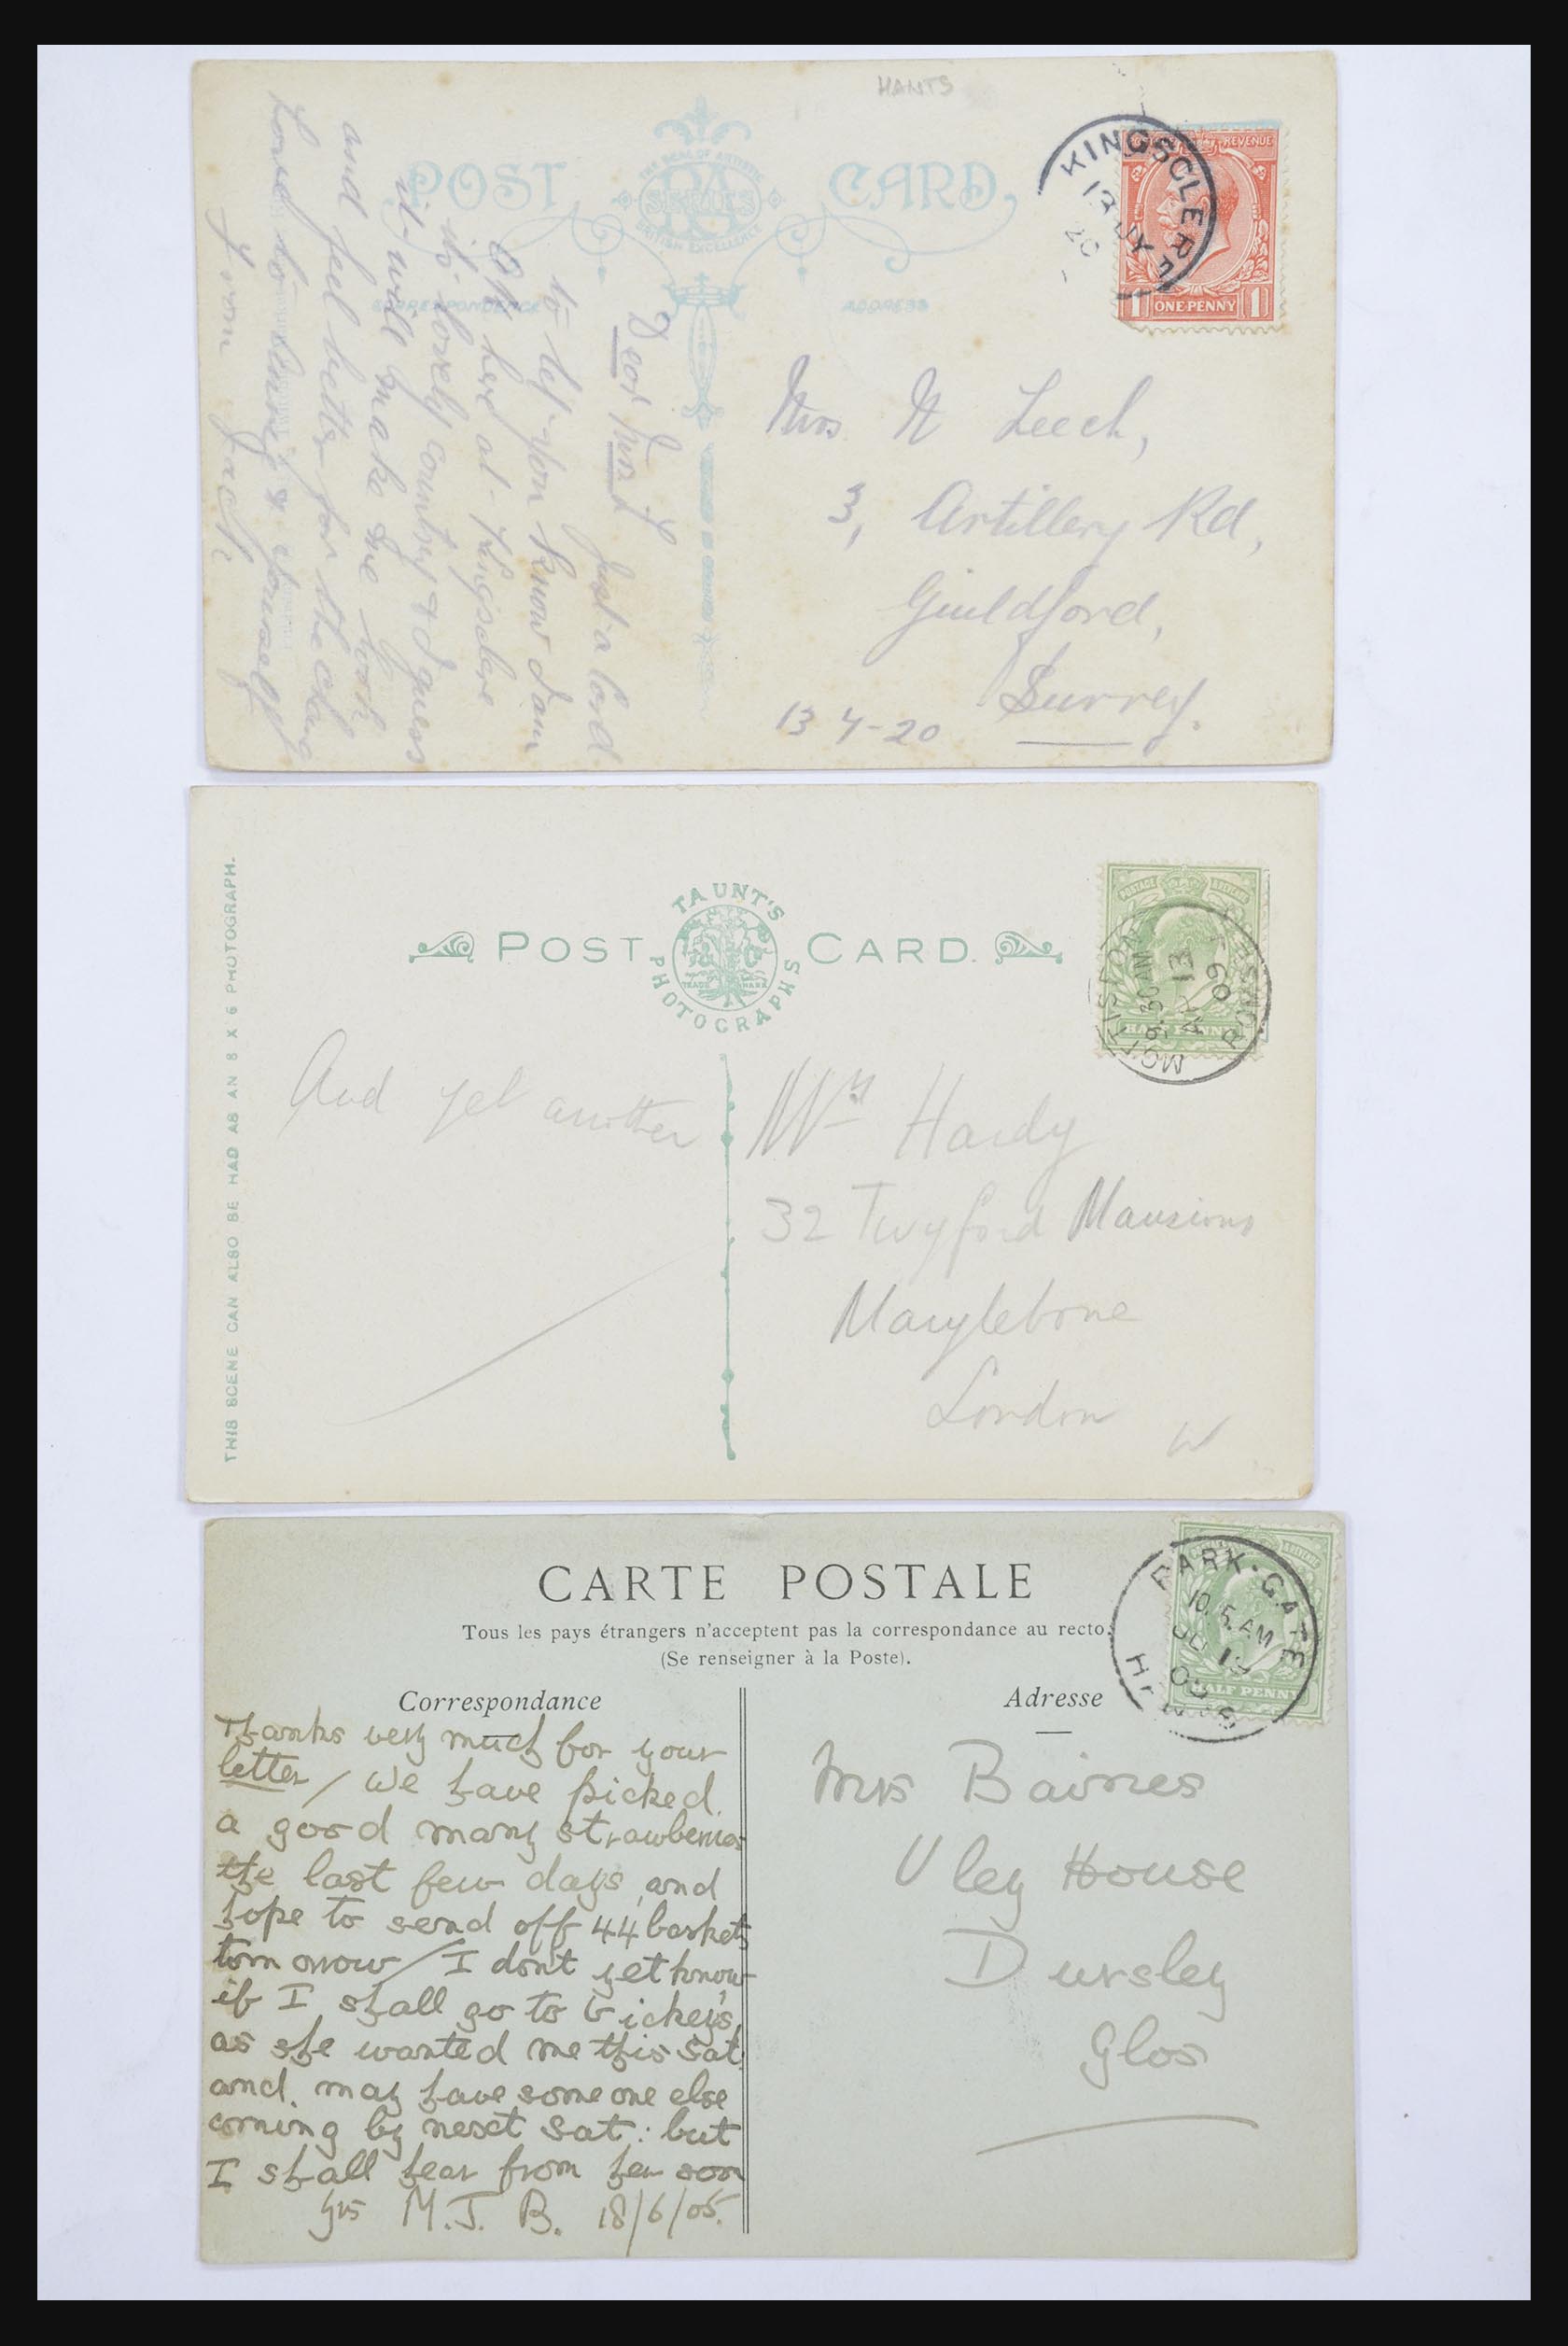 HANTS
POST CARD
THE SEAL OF ARTISTIC
RA
SERIES
BRITISH EXCELLENCE
CORRESPONDENCE
ADDRESS
KINGSCLERE
13 JY
20
REVENUE
1 ONE·PENNY 1
Dear Mrs L
Just a Card
to let you know I am
OK here at Kingsclere
its lovely country & I guess
it will make me look
and feel better for the change
Love to & yourself
from Jack
Mrs N Leech,
3, Artillery Rd,
Guildford,
Surrey.
13 7-20
THIS SCENE CAN ALSO BE HAD AS AN 8 X 6 PHOTOGRAPH.
POST CARD.
TAUNT'S
PHOTOGRAPHS
TRADE MARK
POSTAGE REVENUE
HALF PENNY
MOTTISFONT
9.30 AM
AP 13
09
ROMSEY
And yet another
Mrs Hardy
32 Twyford Mansions
Marylebone
London
W
CARTE POSTALE
Tous les pays étrangers n'acceptent pas la correspondance au recto.
(Se renseigner à la Poste).
Correspondance
Adresse
PARK·GATE
10.5 AM
JU 19
05
HANTS
HALF PENNY
Thanks very much for your
letter / We have picked
a good many strawberries
the last few days, and
hope to send off 44 baskets
tomorrow / I don't yet know
if I shall go to Vickey's,
as she wanted me this Sat
and. may have some one else
coming by next Sat: but
I shall hear from her soon
Yrs M.J. B. 18/6/05.
Mrs Baines
Uley House
Dursley
Glos